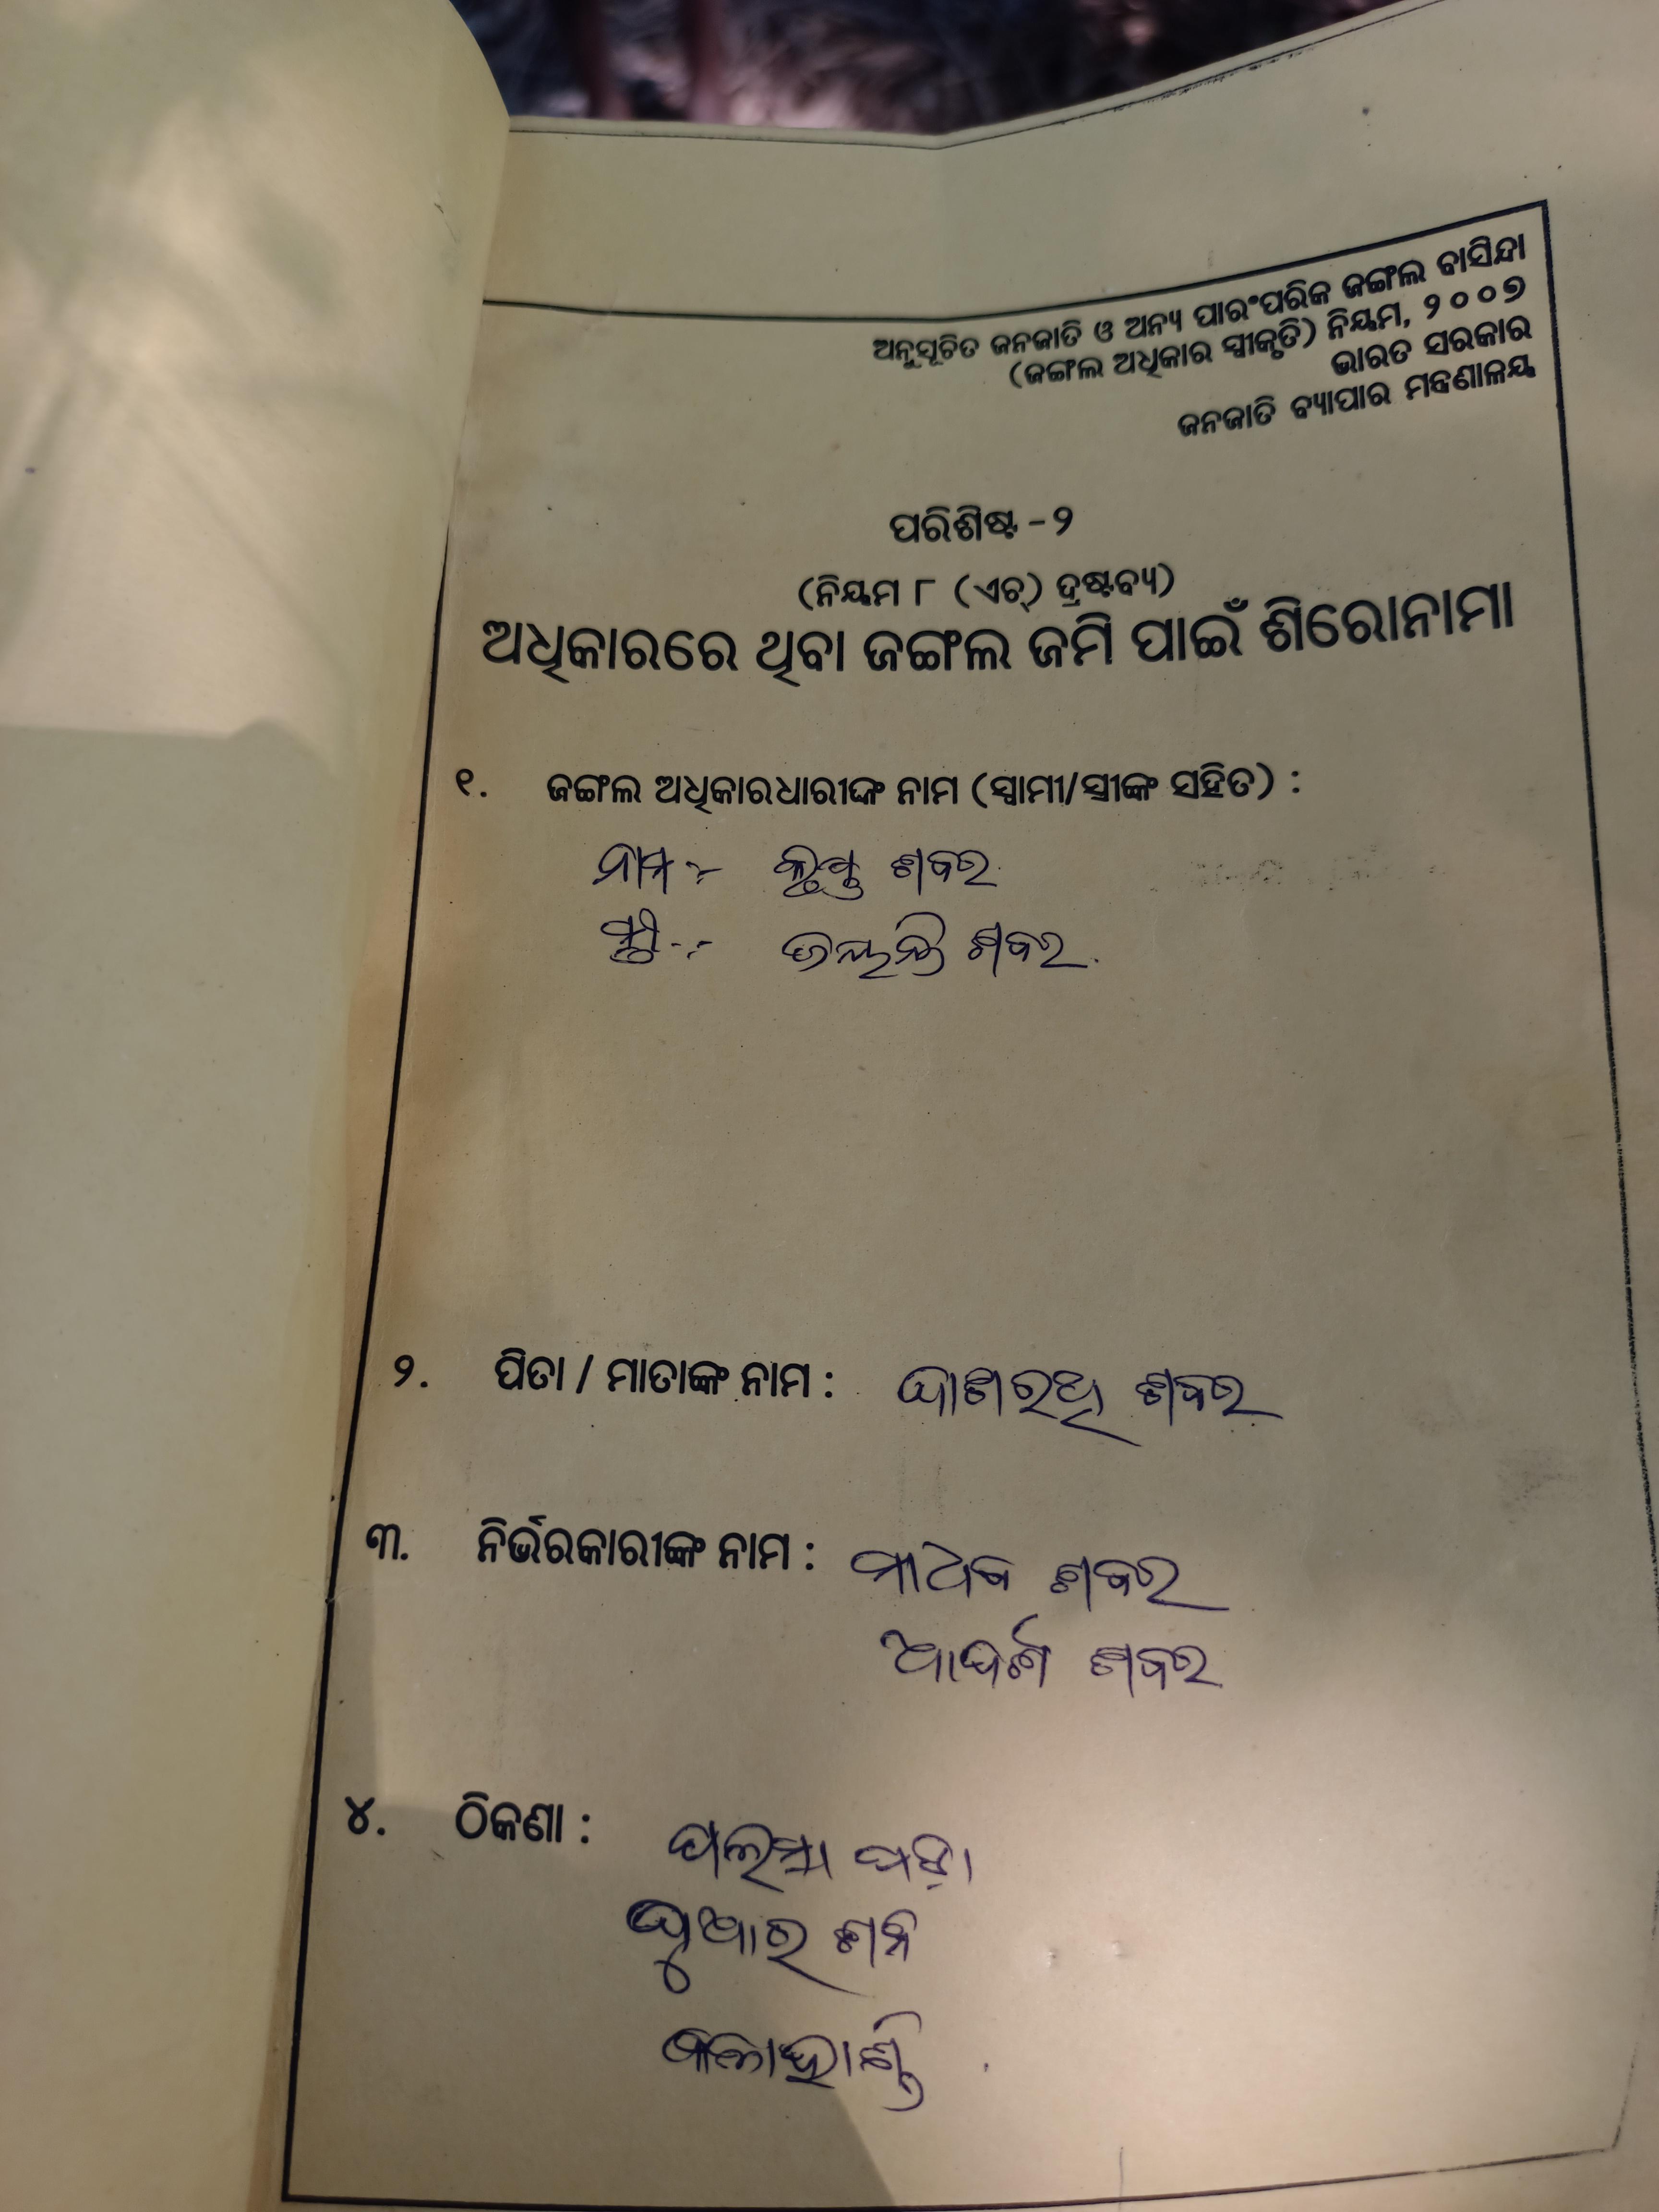 ଅନୁସୂଚିତ ଜନଜାତି ଓ ଅନ୍ୟ ପାରଂପରିକ ଜଙ୍ଗଲ ବାସିନ୍ଦା
(ଜଙ୍ଗଲ ଅଧିକାର ସ୍ୱୀକୃତି) ନିୟମ, ୨୦୦୭
ଭାରତ ସରକାର
ଜନଜାତି ବ୍ୟାପାର ମନ୍ତ୍ରଣାଳୟ
ପରିଶିଷ୍ଟ - ୨
(ନିୟମ ୮ (ଏଚ୍) ଦ୍ରଷ୍ଟବ୍ୟ)
ଅଧିକାରରେ ଥିବା ଜଙ୍ଗଲ ଜମି ପାଇଁ ଶିରୋନାମା
୧. ଜଙ୍ଗଲ ଅଧିକାରଧାରୀଙ୍କ ନାମ (ସ୍ୱାମୀ/ସ୍ତ୍ରୀଙ୍କ ସହିତ) :
ନାମ :- ଶବର
ସ୍ତ୍ରୀ :- ଶବର
୨. ପିତା / ମାତାଙ୍କ ନାମ : ଦାଶରଥି ଶବର
୩. ନିର୍ଭରକାରୀଙ୍କ ନାମ : ମାଧବ ଶବର
ଆଦର୍ଶ ଶବର
୪. ଠିକଣା :
ଦୁଆରଶନି
କଳାହାଣ୍ଡି